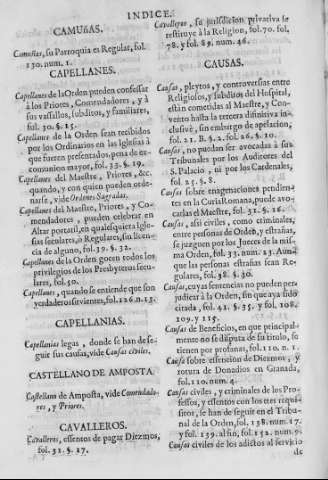 INDICE.
CAMUñAS.
Camuñas, su Parroquia es Regular, fol.
130. num. 1.
CAPELLANES.
Capellanes de la Orden pueden confessar
à los Priores, Comendadores, y à
sus vassallos, subditos, y familiares,
fol. 30. §. 15.
Capellanes de la Orden sean recibidos
por los Ordinarios en las Iglesias à
que fueren presentados, pena de ex-
comunion mayor, fol. 23. §. 19.
Capellanes del Maestre, Priores, &c.
quando, y con quien pueden orde-
narse, vide Ordenes Sagradas.
Capellanes del Maestre, Priores, y Co-
mendadores, pueden celebrar en
Altar portatil, en qualesquiera Igle-
sias seculares, ò Regulares, sin licen-
cia de alguno, fol. 39. §. 32.
Capellanes de la Orden gocen todos los
privilegios de los Presbyteros secu-
lares, fol. 50.
Capellanes, quando se entiende que son
verdaderos sirvientes, fol. 126. n. 13.
CAPELLANIAS.
Capellanias legas, donde se han de se-
guir sus causas, vide Causas civiles.
CASTELLANO DE AMPOSTA.
Castellano de Amposta, vide Comendado-
res, y Priores.
CAVALLEROS.
Cavalleros, essentos de pagar Diezmos,
fol. 31. §. 17.
Cavalleros, su jurisdicion privativa se
restituye à la Religion, fol. 70. fol.
78. y fol. 89. num. 46.
CAUSAS.
Causas, pleytos, y controversias entre
Religiosos, y subditos del Hospital,
están cometidas al Maestre, y Con-
vento hasta la tercera difinitiva in-
clusivè, sin embargo de apelacion;
fol. 21. B. §. 2. fol. 26. §. 10.
Causas, no puedan ser avocadas à sus
Tribunales por los Auditores del
S. Palacio, ni por los Cardenales,
fol. 25. §. 8.
Causas sobre enagenaciones pendien-
tes en la Curia Romana, puede avo-
carlas el Maestre, fol. 32. §. 26.
Causas, assi civiles, como criminales,
entre personas de Orden, y estrañas,
se juzguen por los Jueces de la mis-
ma Orden, fol. 33. num. 23. Aunq̃
que las personas estrañas sean Re-
gulares, fol. 38. §. 30.
Causas, cuyas sentencias no pueden per-
judicar à la Orden, sin que aya sido
citada, fol. 42. §. 35. y fol. 108.
109. y 115.
Causas de Beneficios, en que principal-
mente no se disputa de su titulo, se
tienen por profanas, fol. 110. n. 1.
Causa sobre essencion de Diezmos, y
rotura de Donadios en Granada,
fol. 110. num. 4.
Causas civiles, y criminales de los Pro-
fessos, y essentos con los tres requi-
sitos, se han de seguir en el Tribu-
nal de la Orden, fol. 138. num. 17.
y fol. 139. al fin, fol. 152. num. 9.
Causas civiles de los adictos al servicio
de